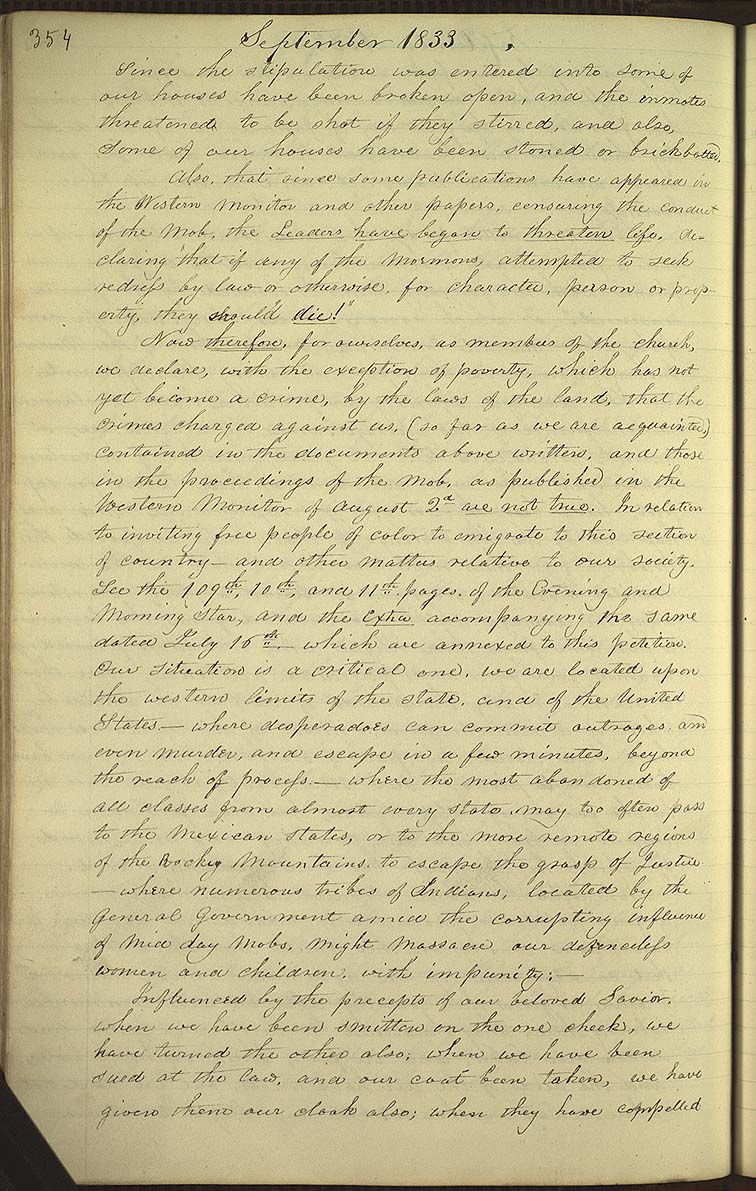 354
September 1833.
Since the stipulation was entered into some of
our houses have been broken open, and the inmates
threatened to be shot if they stirred, and also,
some of our houses have been stoned or brickbatted.
Also, that since some publications have appeared in
the Western Monitor and other papers, censuring the conduct
of the Mob, the Leaders have began to threaten life, de-
claring "that if any of the Mormons, attempted to seek
redress by law or otherwise, for character, person or prop-
erty, they should die!"
Now therefore, for ourselves, as members of the church,
we declare, with the exception of poverty, which has not
yet become a crime, by the laws of the land, that the
crimes charged against us, (so far as we are acquainted,)
contained in the documents above written, and those
in the proceedings of the Mob, as published in the
Western Monitor of August 2d are not true. In relation
to inviting free people of color to emigrate to this section
of country— and other matters relative to our society.
See the 109th, 10th, and 11th pages, of the Evening and
Morning Star, and the Extra accompanying the same
dated July 16th— which are annexed to this petition.
Our situation is a critical one, we are located upon
the western limits of the state, and of the United
States— where desperadoes can commit outrages and
even murder, and escape in a few minutes, beyond
the reach of process.— where the most abandoned of
all classes from almost every state may too often pass
to the Mexican states, or to the more remote regions
of the Rocky Mountains. to escape the grasp of Justice
— where numerous tribes of Indians, located by the
General Government amid the corrupting influence
of mid day Mobs, Might Massacre our defenceless
women and children, with impunity;—
Influenced by the precepts of our beloved Savior,
when we have been smitten on the one cheek, we
have turned the other also; when we have been
sued at the law, and our coat been taken, we have
given them our cloak also; when they have compelled